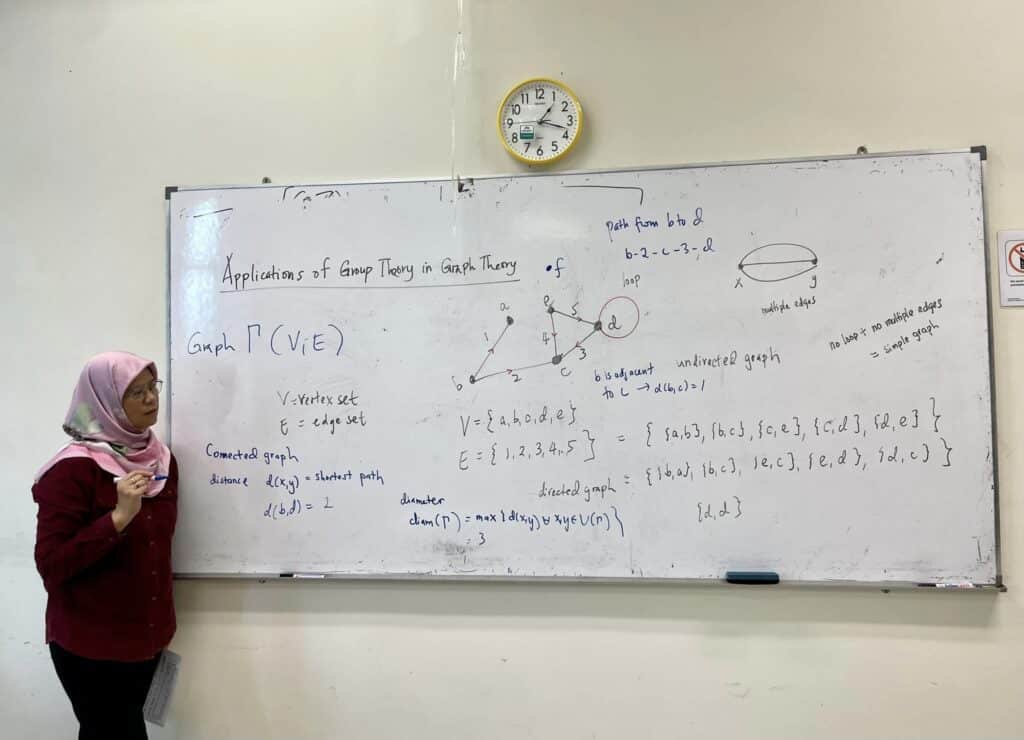 12
1
2
3
4
5
6
7
8
9
10
11
Applications of Group Theory in Graph Theory
Graph Γ (V, E)
V = vertex set
E = edge set
Connected graph
distance d(x,y) = shortest path
d(b,d) = 2
diameter
diam(Γ) = max { d(x,y) ∀ x,y ∈ V(Γ) }
= 3
f
a
e
5
d
1
4
3
b
2
c
path from b to d
b-2-c-3-d
loop
x
y
multiple edges
no loop + no multiple edges
= simple graph
b is adjacent
to c → d(b,c) = 1
undirected graph
V = { a, b, c, d, e }
E = { 1, 2, 3, 4, 5 } = { {a,b}, {b,c}, {c,e}, {c,d}, {d,e} }
directed graph = { {b,a}, {b,c}, {e,c}, {e,d}, {d,c} }
{d,d}